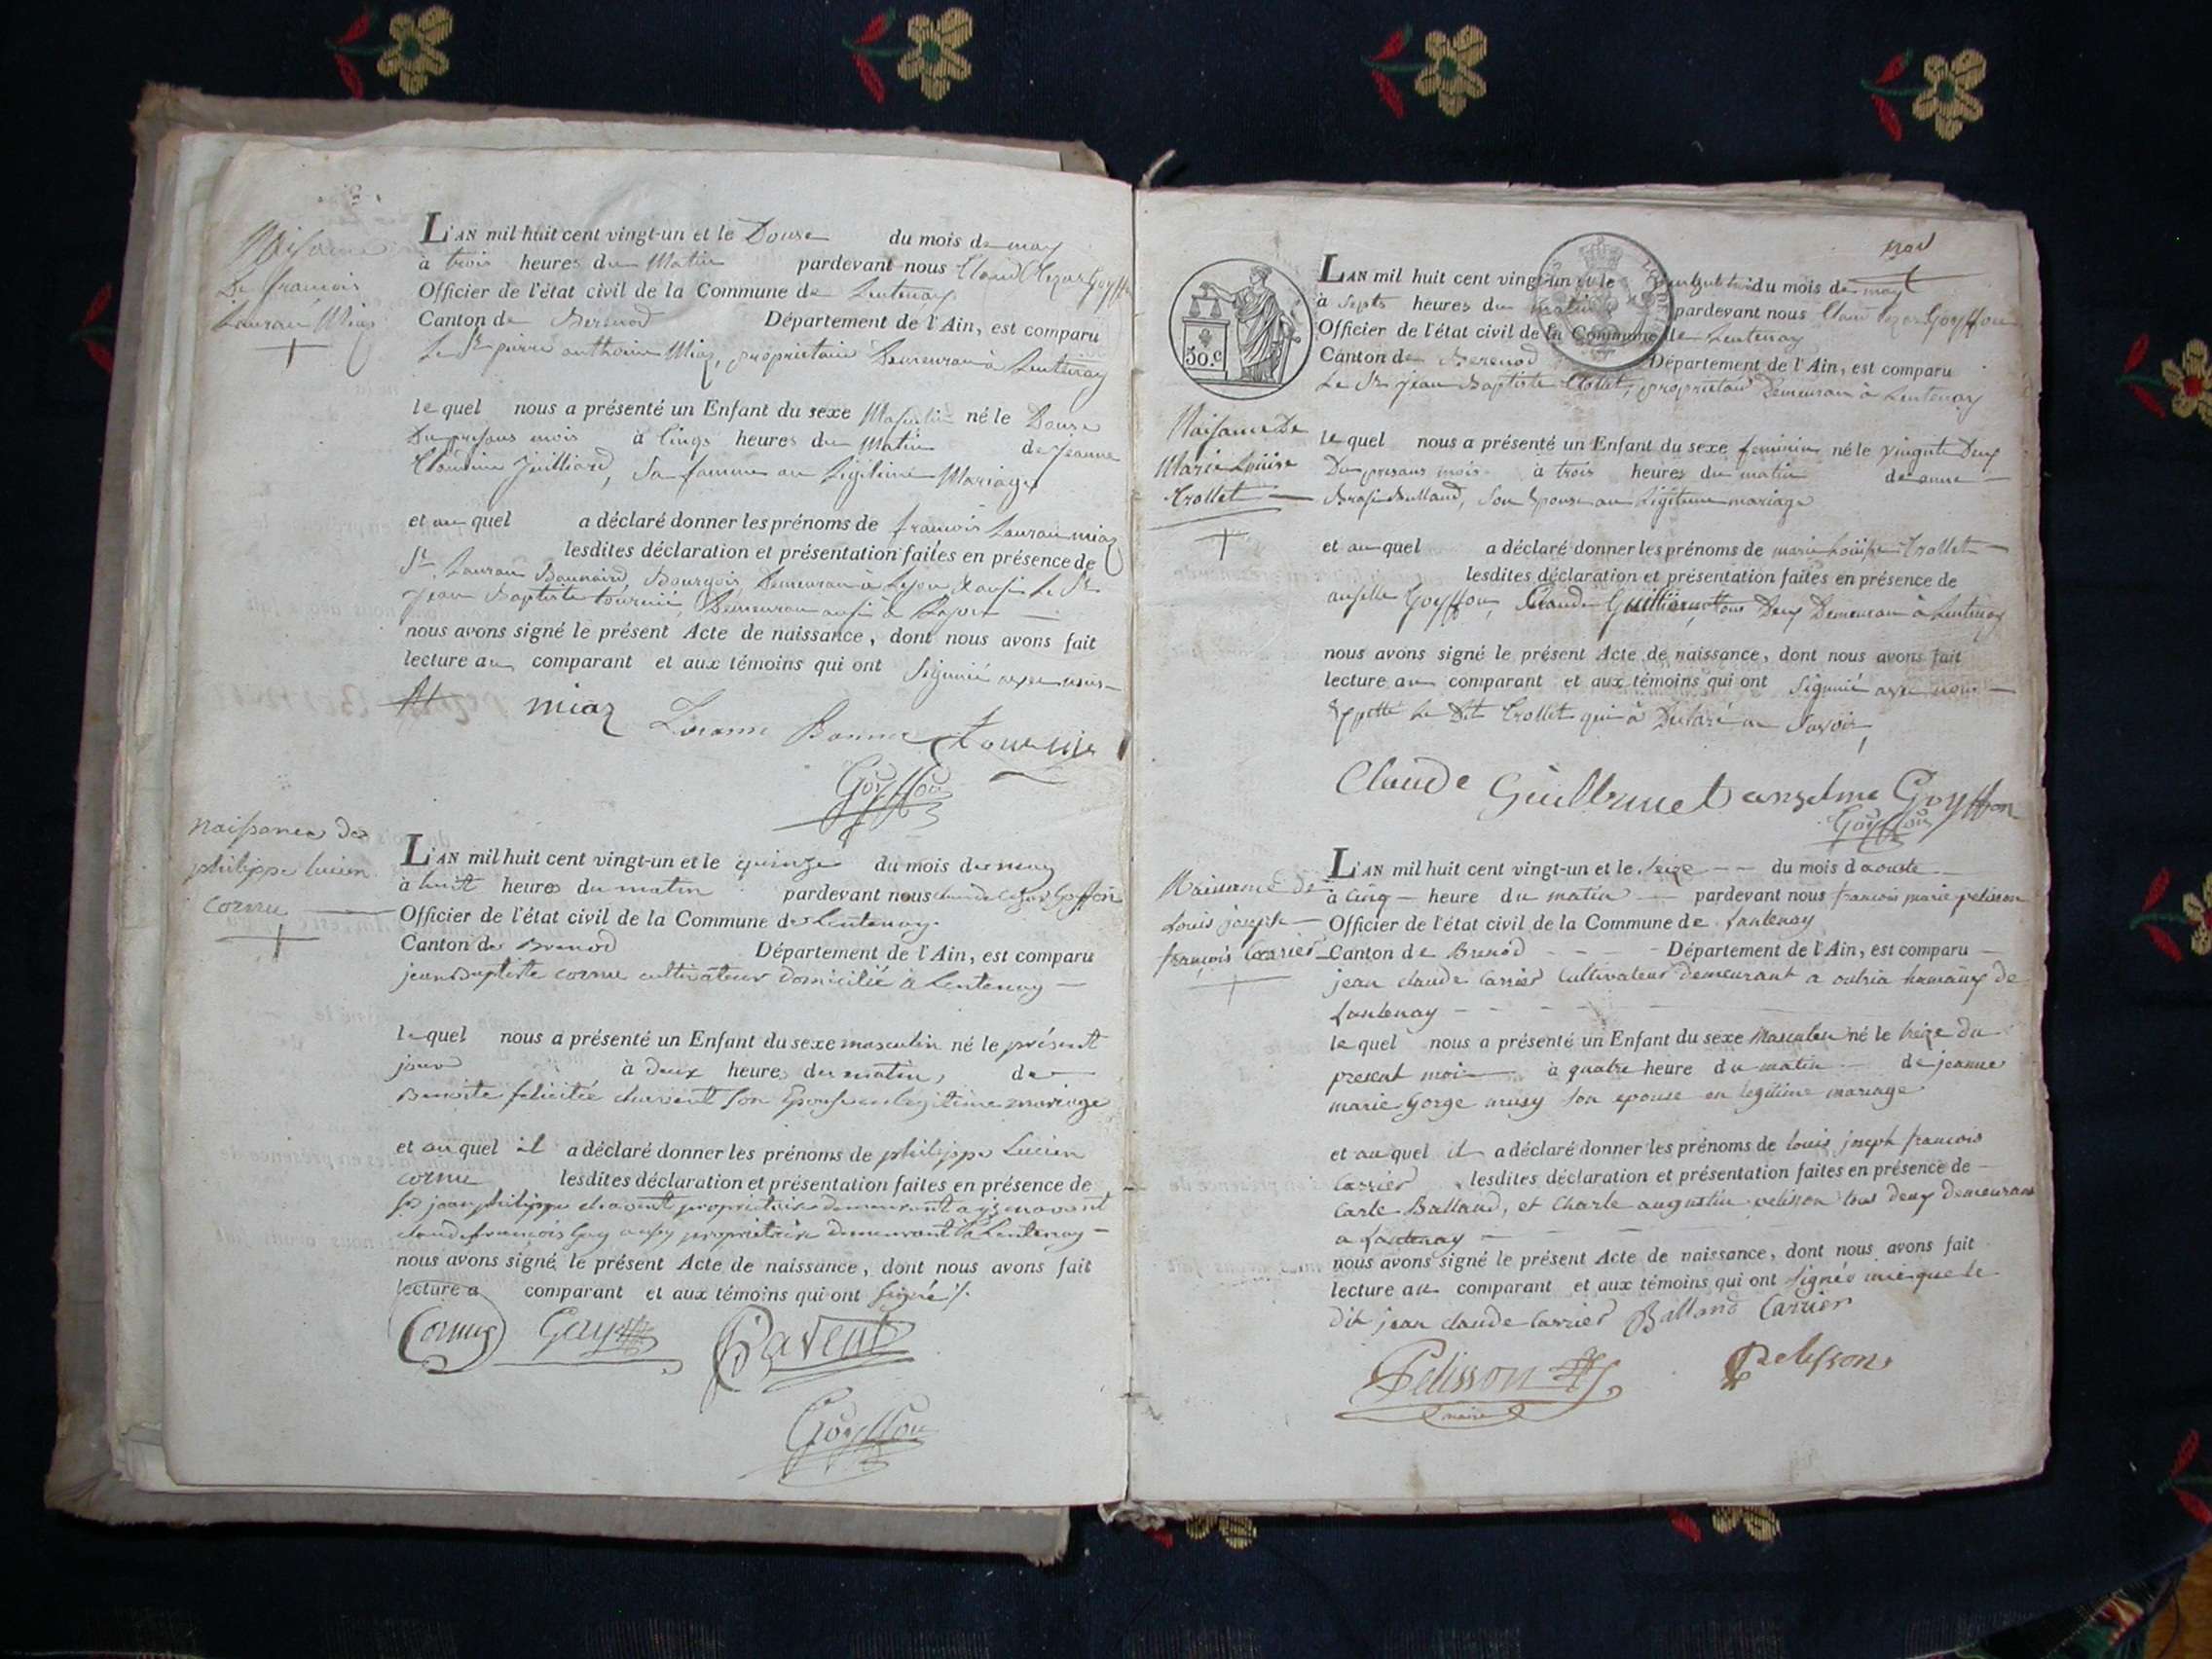 Naissance
De francois
Lauran Miaz
L'AN mil huit cent vingt-un et le Douse du mois de may
à trois heures du Matin pardevant nous Claud Cezar Goyffon
Officier de l'état civil de la Commune de Lentenay
Canton de Berenod Département de l'Ain, est comparu
Le Sr pierre anthoine Miaz, proprietaire Demeuran à Lentenay
lequel nous a présenté un Enfant du sexe Masculin né le Douse
Du presans mois à Cinqs heures du Matin de Jeanne
Claudine Juilliard, Sa famme au Ligitime Mariage
et au quel a déclaré donner les prénoms de francois Lauran miaz
lesdites déclaration et présentation faites en présence de
Sr Lauran Bonnaird, Bourgois, Demeuran à Lyon & ausi Le Sr
Jean Baptiste tournié, Demeuran ausi à Lyon
nous avons signé le présent Acte de naissance, dont nous avons fait
lecture au comparant et aux témoins qui ont Signié avec nous
miaz Bonnar tournie
Goyffon
Naissance de
philippe lucien
cornu
L'AN mil huit cent vingt-un et le quinze du mois de may
à huit heures du matin pardevant nous claude Cezar Goyffon
Officier de l'état civil de la Commune de Lentenay
Canton de Brenod Département de l'Ain, est comparu
jean Baptiste cornu cultivateur domicilié à Lentenay
lequel nous a présenté un Enfant du sexe masculin né le présent
jour à deux heures du matin, de
Benoite félicitée chavent son Epouse en legitime mariage
et au quel il a déclaré donner les prénoms de philippe Lucien
cornu lesdites déclaration et présentation faites en présence de
jean philippe chavent propriétaire demeurant a
claude francois Guy aussy propriétaire demeurant à Lentenay
nous avons signé le présent Acte de naissance, dont nous avons fait
lecture a comparant et aux témoins qui ont signé
Cornu Guy Chavent
Goyffon
L'AN mil huit cent vingt-un et le du mois de may
à septs heures du matin pardevant nous Claud Cezar Goyffon
Officier de l'état civil de la Commune de Lentenay
Canton de Berenod Département de l'Ain, est comparu
50.c
Le Sr Jean Baptiste Crollet, proprietair Demeuran à Lentenay
Naisance De
Marie Louise
Crollet
lequel nous a présenté un Enfant du sexe feminin né le vingnte Deux
Du presans mois à trois heures du matin de anne
Balland, son Epouse au Ligitime mariage
et au quel a déclaré donner les prénoms de marie Louise Crollet
lesdites déclaration et présentation faites en présence de
anselle Goyffon, Claude tous Deux Demeuran à Lentenay
nous avons signé le présent Acte de naissance, dont nous avons fait
lecture au comparant et aux témoins qui ont Signié avec nous
Exepté Le Dit Crollet qui à Declaré ne Savoir
Claude Guillermet anzelme Goyffon
Goyffon
Naissance de
Louis joseph
françois Carrier
L'AN mil huit cent vingt-un et le seize du mois d aouste
à Cinq heure du matin pardevant nous francois marie pelisson
Officier de l'état civil de la Commune de Lantenay
Canton de Brenod Département de l'Ain, est comparu
jean claude Carrier Cultivateur demeurant a outria hamaux de
Lantenay
lequel nous a présenté un Enfant du sexe Masculin né le treize du
present moi à quatre heure du matin de jeanne
marie Gorge musy son epouse en legitime mariage
et au quel il a déclaré donner les prénoms de louis joseph francois
Carrier lesdites déclaration et présentation faites en présence de
Carle Balland, et Charle augustin pelisson tous deux demeurans
a Lantenay
nous avons signé le présent Acte de naissance, dont nous avons fait
lecture au comparant et aux témoins qui ont signés que le
dit jean claude Carrier Balland Carrier
Pelisson Pelisson
maire